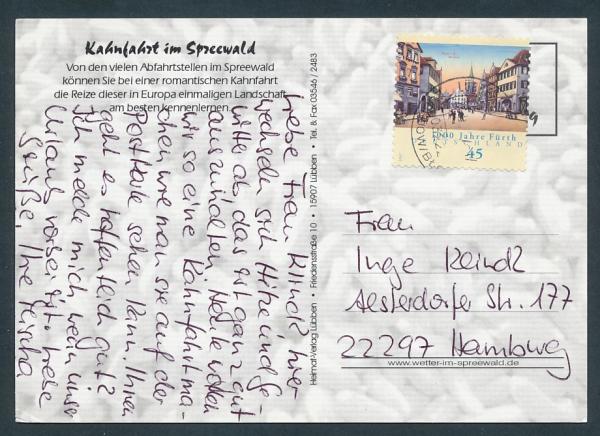 Kahnfahrt im Spreewald
Von den vielen Abfahrtstellen im Spreewald
können Sie bei einer romantischen Kahnfahrt
die Reize dieser in Europa einmaligen Landschaft
am besten kennenlernen.
Liebe Frau Klindt, hier
wechseln sich Hitze und Ge-
witter ab, das ist ganz gut
auszuhalten. Heute wollen
wir so eine Kahnfahrt ma-
chen wie man sie auf der
Postkarte sehen kann. Ihnen
geht es hoffentlich gut?
Ich melde mich wenn unser
Urlaub vorbei ist. Liebe
Grüße, Ihre
Heimat-Verlag Lübben • Friedensstraße 10 • 15907 Lübben • Tel. & Fax 03546 / 2483
1000 Jahre Fürth
DEUTSCHLAND
45
Frau
Inge
Alsterdorfer Str. 177
22297 Hamburg
www.wetter-im-spreewald.de